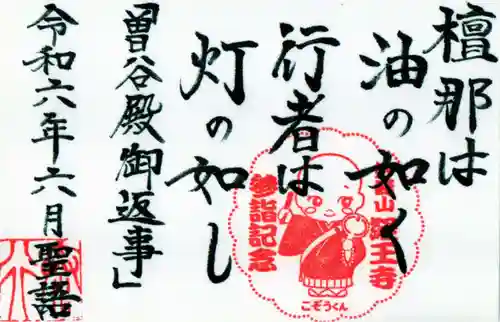 檀那は
油の如く
行者は
灯の如し
「曽谷殿御返事」
令和六年六月 聖語
参詣記念
こぞうくん